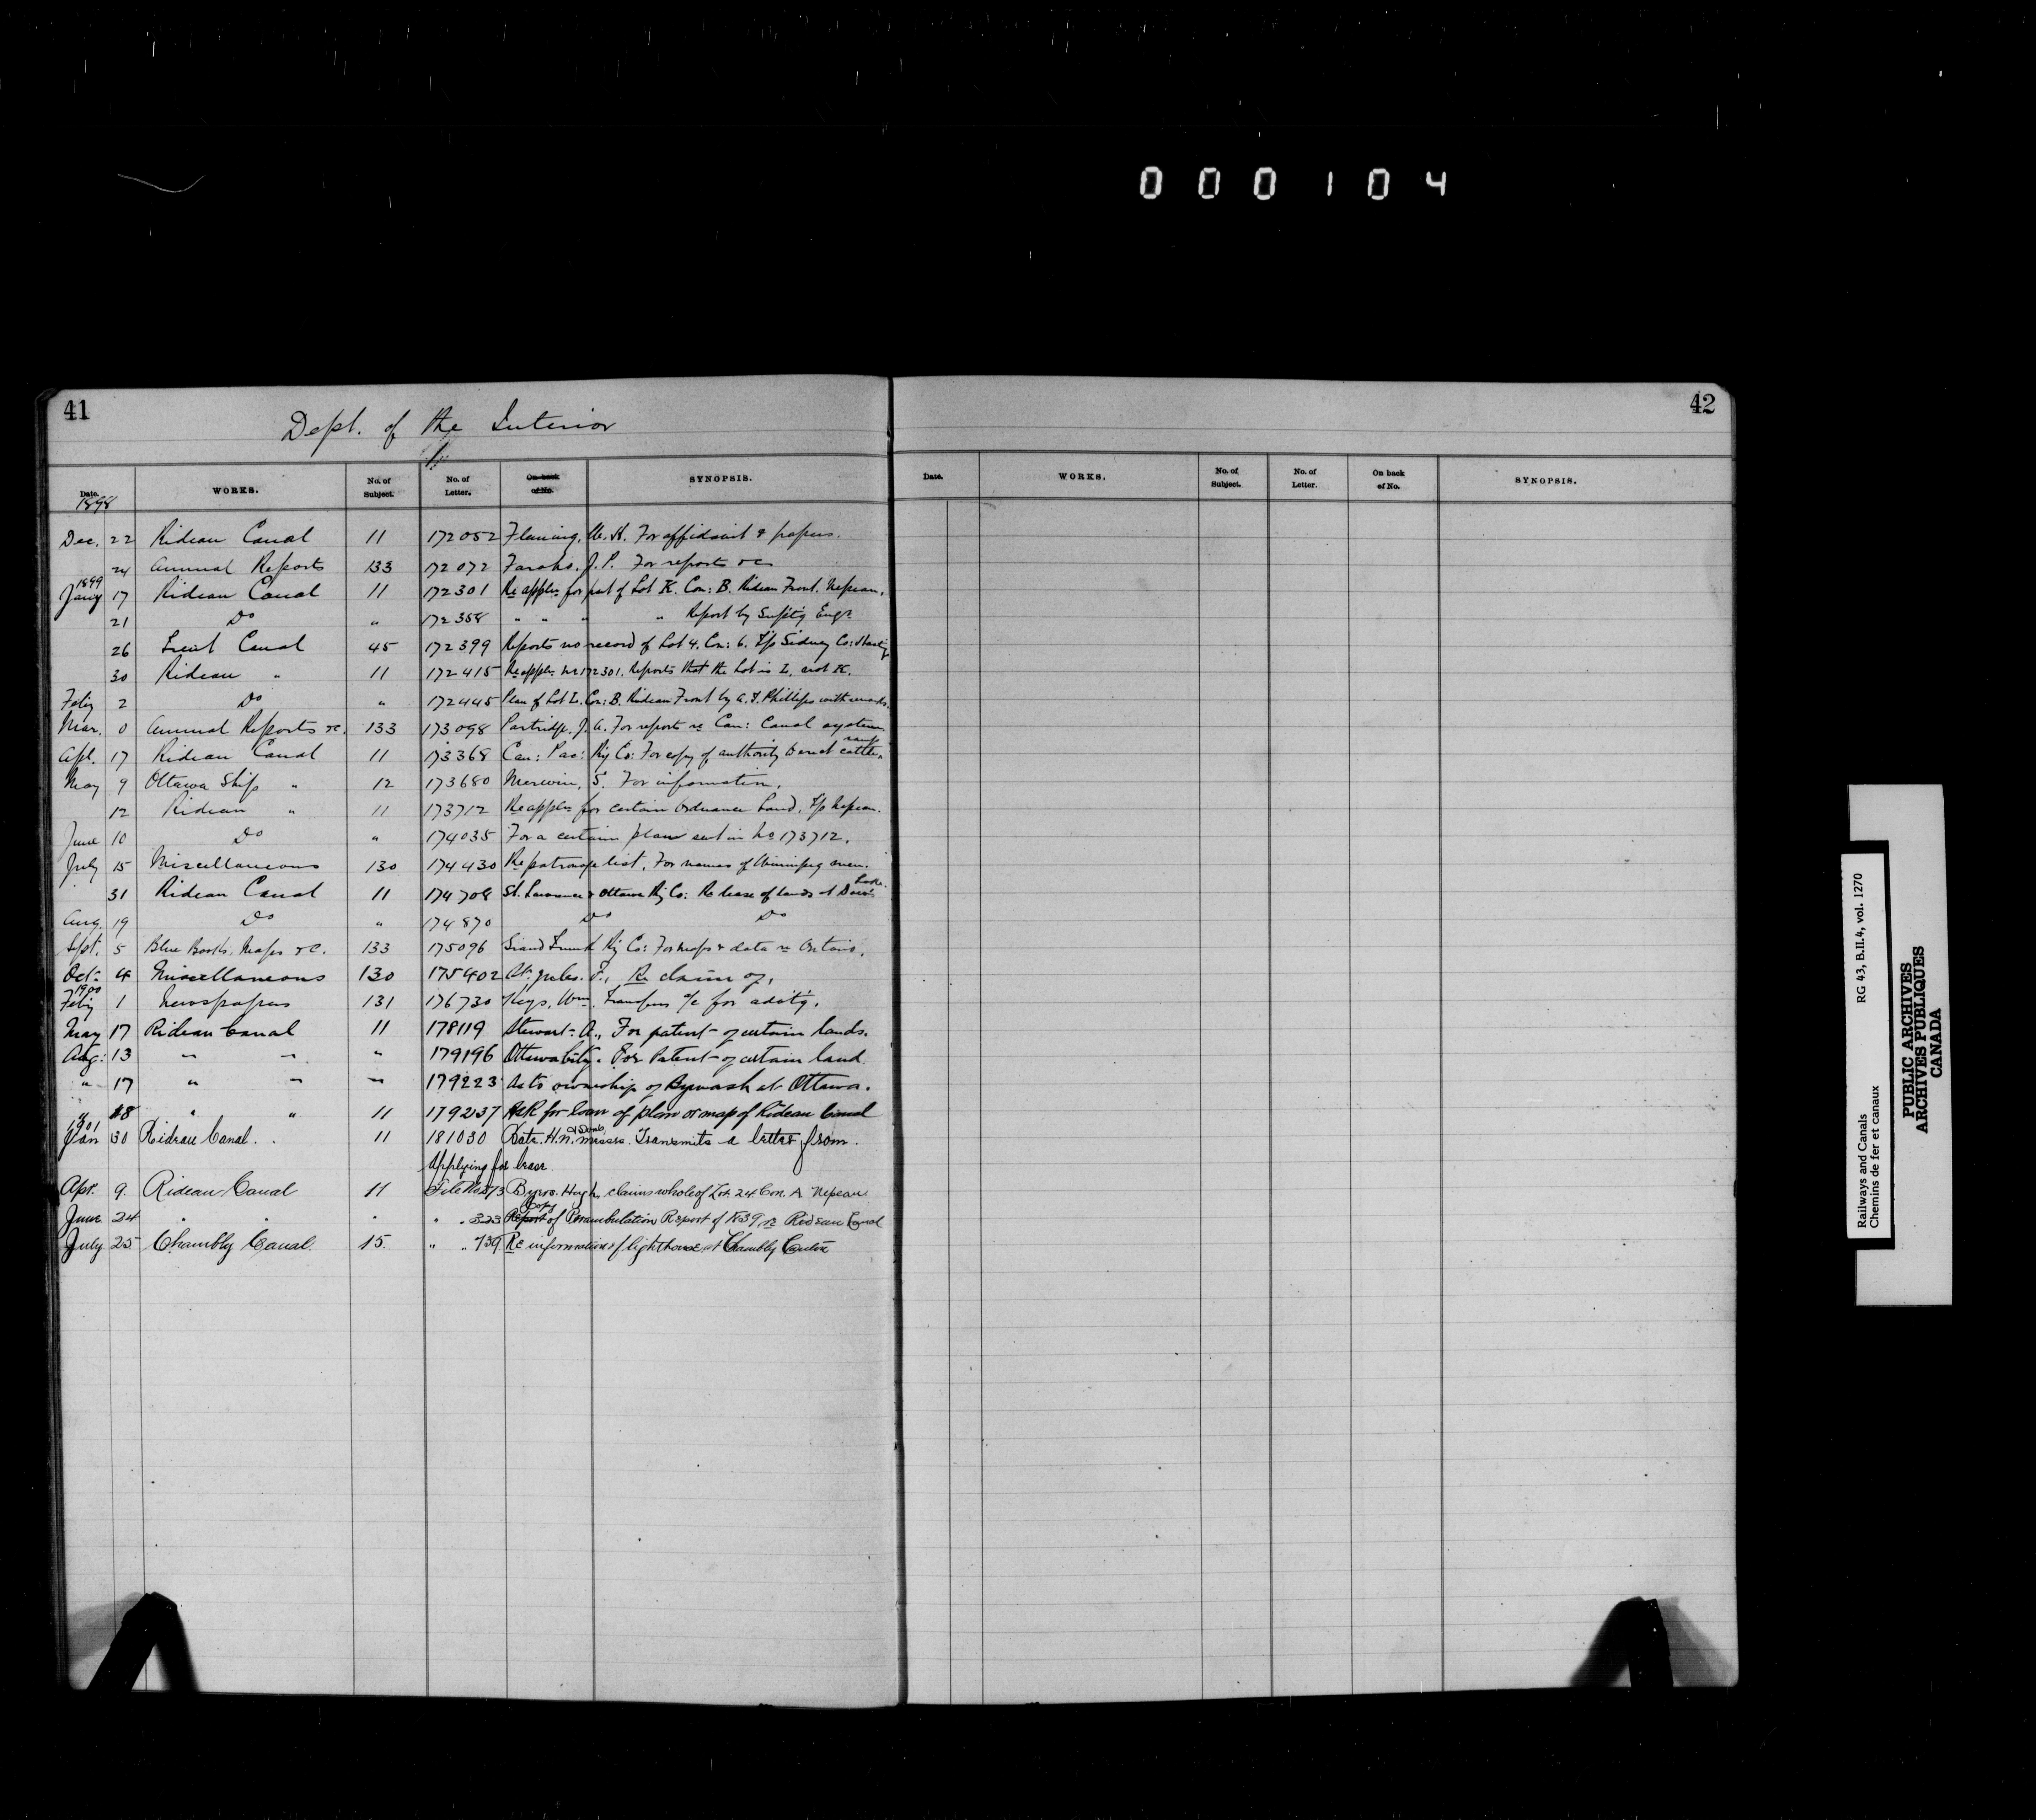 000104
41
Dept. of the Interior
Date. WORKS. No. of Subject. No. of Letter. On back of No. SYNOPSIS.
1898
Dec. 22 Rideau Canal 11 172052 Fleming, W. H. For affidavit & papers.
24 Annual Reports 133 172072 J. P. For reports &c
1899
Jany 17 Rideau Canal 11 172301 Re appln for part of Lot K. Con: B. Rideau Front. Nepean.
21 Do " 172358 " " " " Report by Supt'g Engr
26 Trent Canal 45 172399 Reports no record of Lot 4. Con: 6. T/p Sidney Co: Hastings
30 Rideau " 11 172415 Re appln No 172301. Reports that the Lot is L. not K.
Feby 2 Do " 172445 Plan of Lot L. Con: B. Rideau Front by A. J. Phillips with
Mar. 0 Annual Reports &c. 133 173098 Partridge, J. A. For reports re Can: Canal system
Apl. 17 Rideau Canal 11 173368 Can: Pac: Ry Co: For copy of authority to erect cattle
May 9 Ottawa Ship " 12 173680 Merwin, S. For information.
12 Rideau " 11 173712 Re appln for certain Ordnance Land, T/p Nepean.
June 10 Do " 174035 For a certain plan sent in No 173712.
July 15 Miscellaneous 130 174430 Re patronage list. For names of Winnipeg men.
31 Rideau Canal 11 174708 St. Lawrence & Ottawa Ry Co: Re lease of lands at Dow's Lake.
Aug. 19 Do " 174870 Do Do
Sept. 5 Blue Books, Maps &c. 133 175096 Grand Trunk Ry Co: For maps & data re Ontario.
Oct. 4 Miscellaneous 130 175402 St. Jules. F., Re claim of,
1900
Feby 1 Newspapers 131 176730 Keys, Wm. Transfers a/c for advtg.
May 17 Rideau Canal 11 178119 Stewart A., For patent of certain lands.
Aug: 13 " " " 179196 Ottawa City. For Patent of certain land.
" 17 " " " 179223 As to ownership of Bywash at Ottawa.
" 18 " " 11 179237 Ask for loan of plan or map of Rideau Canal
1901
Jan 30 Rideau Canal. . 11 181030 Bate. H. N. & Sons, Messrs. Transmits a letter from.
Applying for lease.
Apr. 9. Rideau Canal 11 File No 273 Byers. Hugh, claims whole of Lot 24. Con. A Nepean
June 24 . . . " . 323 Copy of Perambulation Report of 1839 re Rideau Canal
July 25 Chambly Canal. 15. " . 739 Re information of lighthouse at Chambly Canton
42
Date. WORKS. No. of Subject. No. of Letter. On back of No. SYNOPSIS.
Railways and Canals RG 43, B.II.4, vol. 1270
Chemins de fer et canaux
PUBLIC ARCHIVES
ARCHIVES PUBLIQUES
CANADA